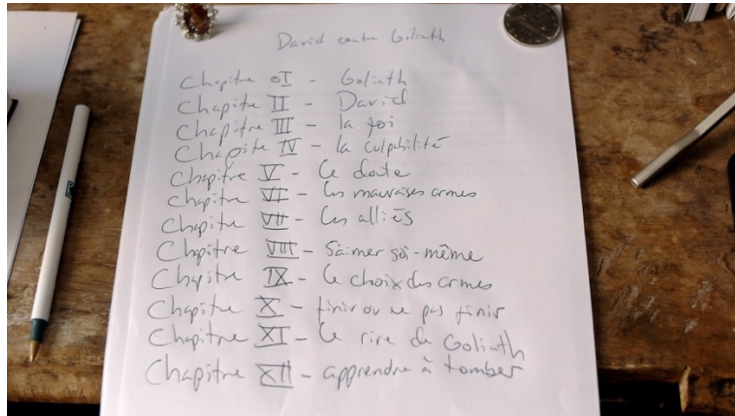 David contre Goliath
Chapitre I - Goliath
Chapitre II - David
Chapitre III - la foi
Chapitre IV - la culpabilité
Chapitre V - le doute
Chapitre VI - les mauvaises armes
Chapitre VII - les alliés
Chapitre VIII - S'aimer soi-même
Chapitre IX - le choix des armes
Chapitre X - finir ou ne pas finir
Chapitre XI - le rire de Goliath
Chapitre XII - apprendre à tomber